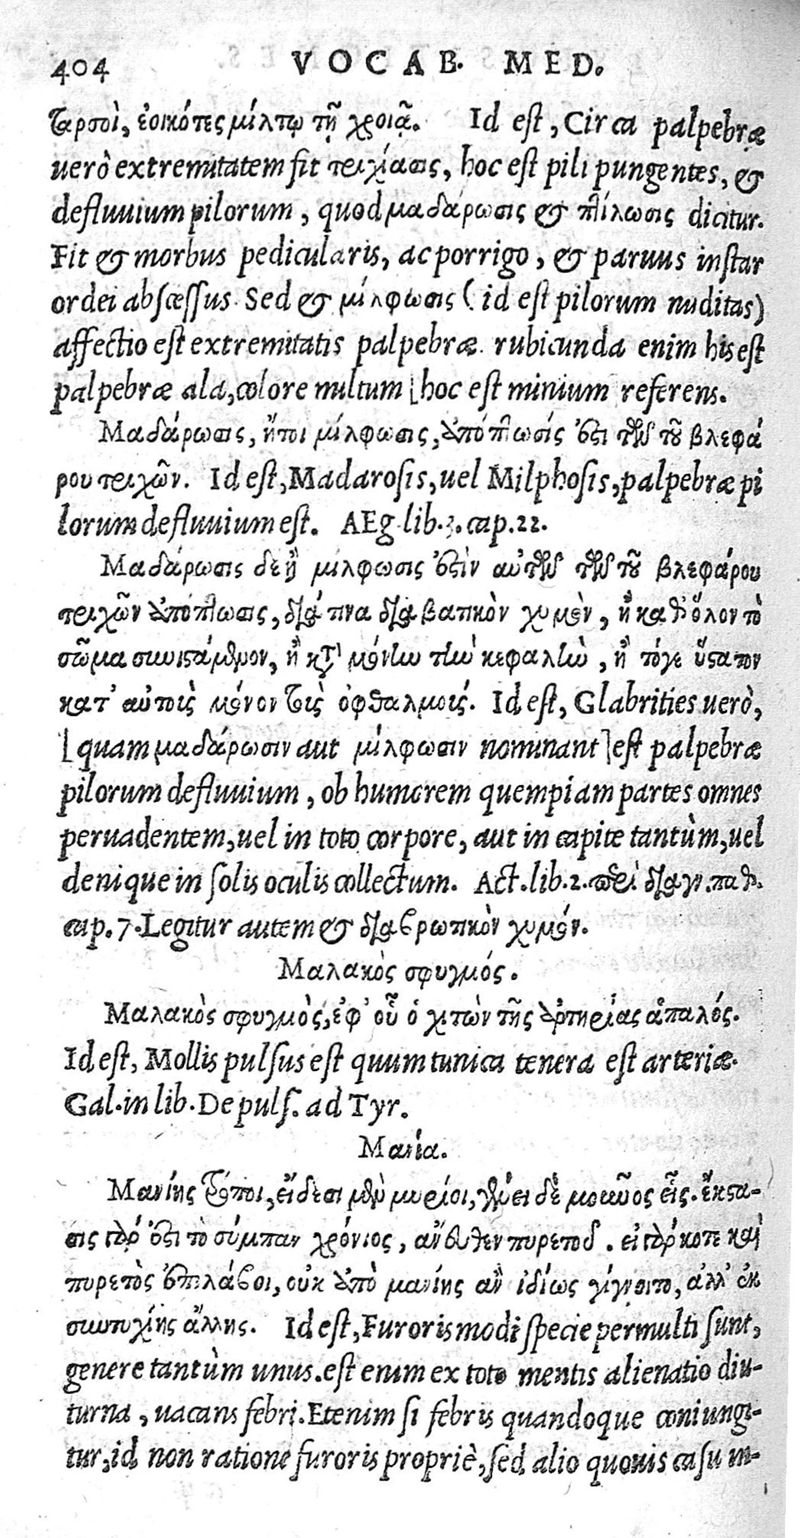 404 VOCAB. MED.
ταρσοὶ, ἐοικότες μίλτῳ τῇ χροιᾷ. Id est, Circa palpebræ
uerò extremitatem fit τριχίασις, hoc est pili pungentes, &
defluuium pilorum, quod μαδάρωσις & πτίλωσις dicitur.
Fit & morbus pedicularis, ac porrigo, & paruus instar
ordei abscessus. Sed & μίλφωσις (id est pilorum nuditas)
affectio est extremitatis palpebræ. rubicunda enim his est
palpebræ ala, colore miltum [hoc est minium referens.
Μαδάρωσις, ἤτοι μίλφωσις, ἀπόπτωσίς ἐστι τῶν τοῦ βλεφά
ρου τριχῶν. Id est, Madarosis, uel Milphosis, palpebræ pi
lorum defluuium est. AEg. lib. 3. cap. 22.
Μαδάρωσις δὲ ἢ μίλφωσις ἐστὶν αὐτῶν τῶν τοῦ βλεφάρου
τριχῶν ἀπόπτωσις, διά τινα διαβατικὸν χυμὸν, ἢ καθ' ὅλον τὸ
σῶμα συνιστάμενον, ἢ κατὰ μόνην τὴν κεφαλὴν, ἢ τόγε ὕστατον
κατ' αὐτοὺς μόνον τοὺς ὀφθαλμούς. Id est, Glabrities uerò,
[quam μαδάρωσιν aut μίλφωσιν nominant] est palpebræ
pilorum defluuium, ob humorem quempiam partes omnes
peruadentem, uel in toto corpore, aut in capite tantùm, uel
denique in solis oculis collectum. Act. lib. 2. περὶ διαγν. παθ.
cap. 7. Legitur autem & διαβρωτικὸν χυμόν.
Μαλακὸς σφυγμός.
Μαλακὸς σφυγμὸς, ἐφ' οὗ ὁ χιτὼν τῆς ἀρτηρίας ἁπαλός.
Id est, Mollis pulsus est quum tunica tenera est arteriæ.
Gal. in lib. De puls. ad Tyr.
Μανία.
Μανίης τρόποι, εἴδεσι μὲν μυρίοι, γένει δὲ μοῦνος εἷς. ἔκστα-
σις γάρ ἐστι τὸ σύμπαν χρόνιος, ἄνευθεν πυρετοῦ. εἰ γάρ κοτε καὶ
πυρετὸς ἐπιλάβοι, οὐκ ἀπὸ μανίης ἂν ἰδίως γίγνοιτο, ἀλλ' ἐκ
συντυχίης ἄλλης. Id est, Furoris modi specie permulti sunt,
genere tantùm unus. est enim ex toto mentis alienatio diu-
turna, uacans febri. Etenim si febris quandoque coniungi-
tur, id non ratione furoris propriè, sed alio quouis casu in-